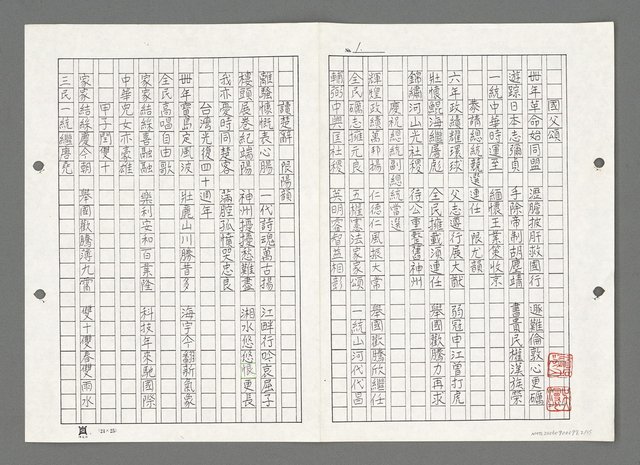 No. 1
國父頌
卅年革命始同盟 瀝膽披肝救國行 遯難倫敦心更礪
遊踪日本志彌貞 手除帝制胡塵靖 書貴民權漢族榮
一統中華時運至 緬懷王業策收京
恭禱總統競選連任 限尤韻
六年政績耀環球 父志遵行展大猷 弱冠申江曾打虎
壯懷鯤海繼屠彪 全民擁戴須連任 舉國歡騰力再求
錦繡河山光社稷 待公重整舊神州
慶祝總統副總統當選
輝煌政績萬邦揚 仁德仁風振大常 舉國歡騰欣繼任
全民礪志擁元良 五權憲法家家頌 一統山河代代昌
輔弼中興匡社稷 英明睿智益相彰
讀楚辭 限陽韻
離騷慷慨表心腸 一代詩魂萬古揚 江畔行吟哀屈子
樓頭展卷紀端陽 神州擾擾愁難盡 湘水悠悠恨更長
我亦憂時同楚客 滿腔孤憤哭忠良
台灣光復四十週年
卌年寶島定風波 壯麗山川勝昔多 海宇今翻新氣象
全民高唱自由歌
家家結綵喜融融 樂利安和百業隆 科技年來馳國際
中華兒女亦豪雄
甲子閏雙十
家家結綵慶今朝 舉國歡騰薄九霄 雙十雙春雙雨水
三民一統繼唐堯